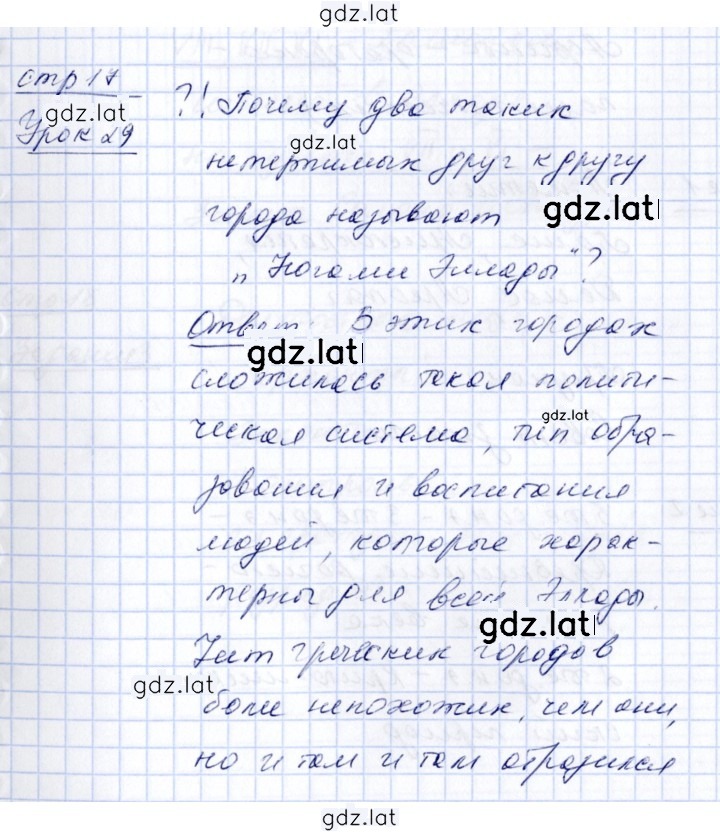 gdz.lat
стр 17
gdz.lat
Урок 29
?! Почему два таких
gdz.lat
нетерпимых друг к другу
города называют
gdz.lat
„ Ногами Эллады "?
Ответ: В этих городах
gdz.lat
сложилась такая полити-
gdz.lat
ческая система, тип обра-
зования и воспитания
людей, которые харак-
терны для всей Эллады.
gdz.lat
Нет греческих городов
gdz.lat
более непохожих, чем они,
но и там и там отразился
gdz.lat